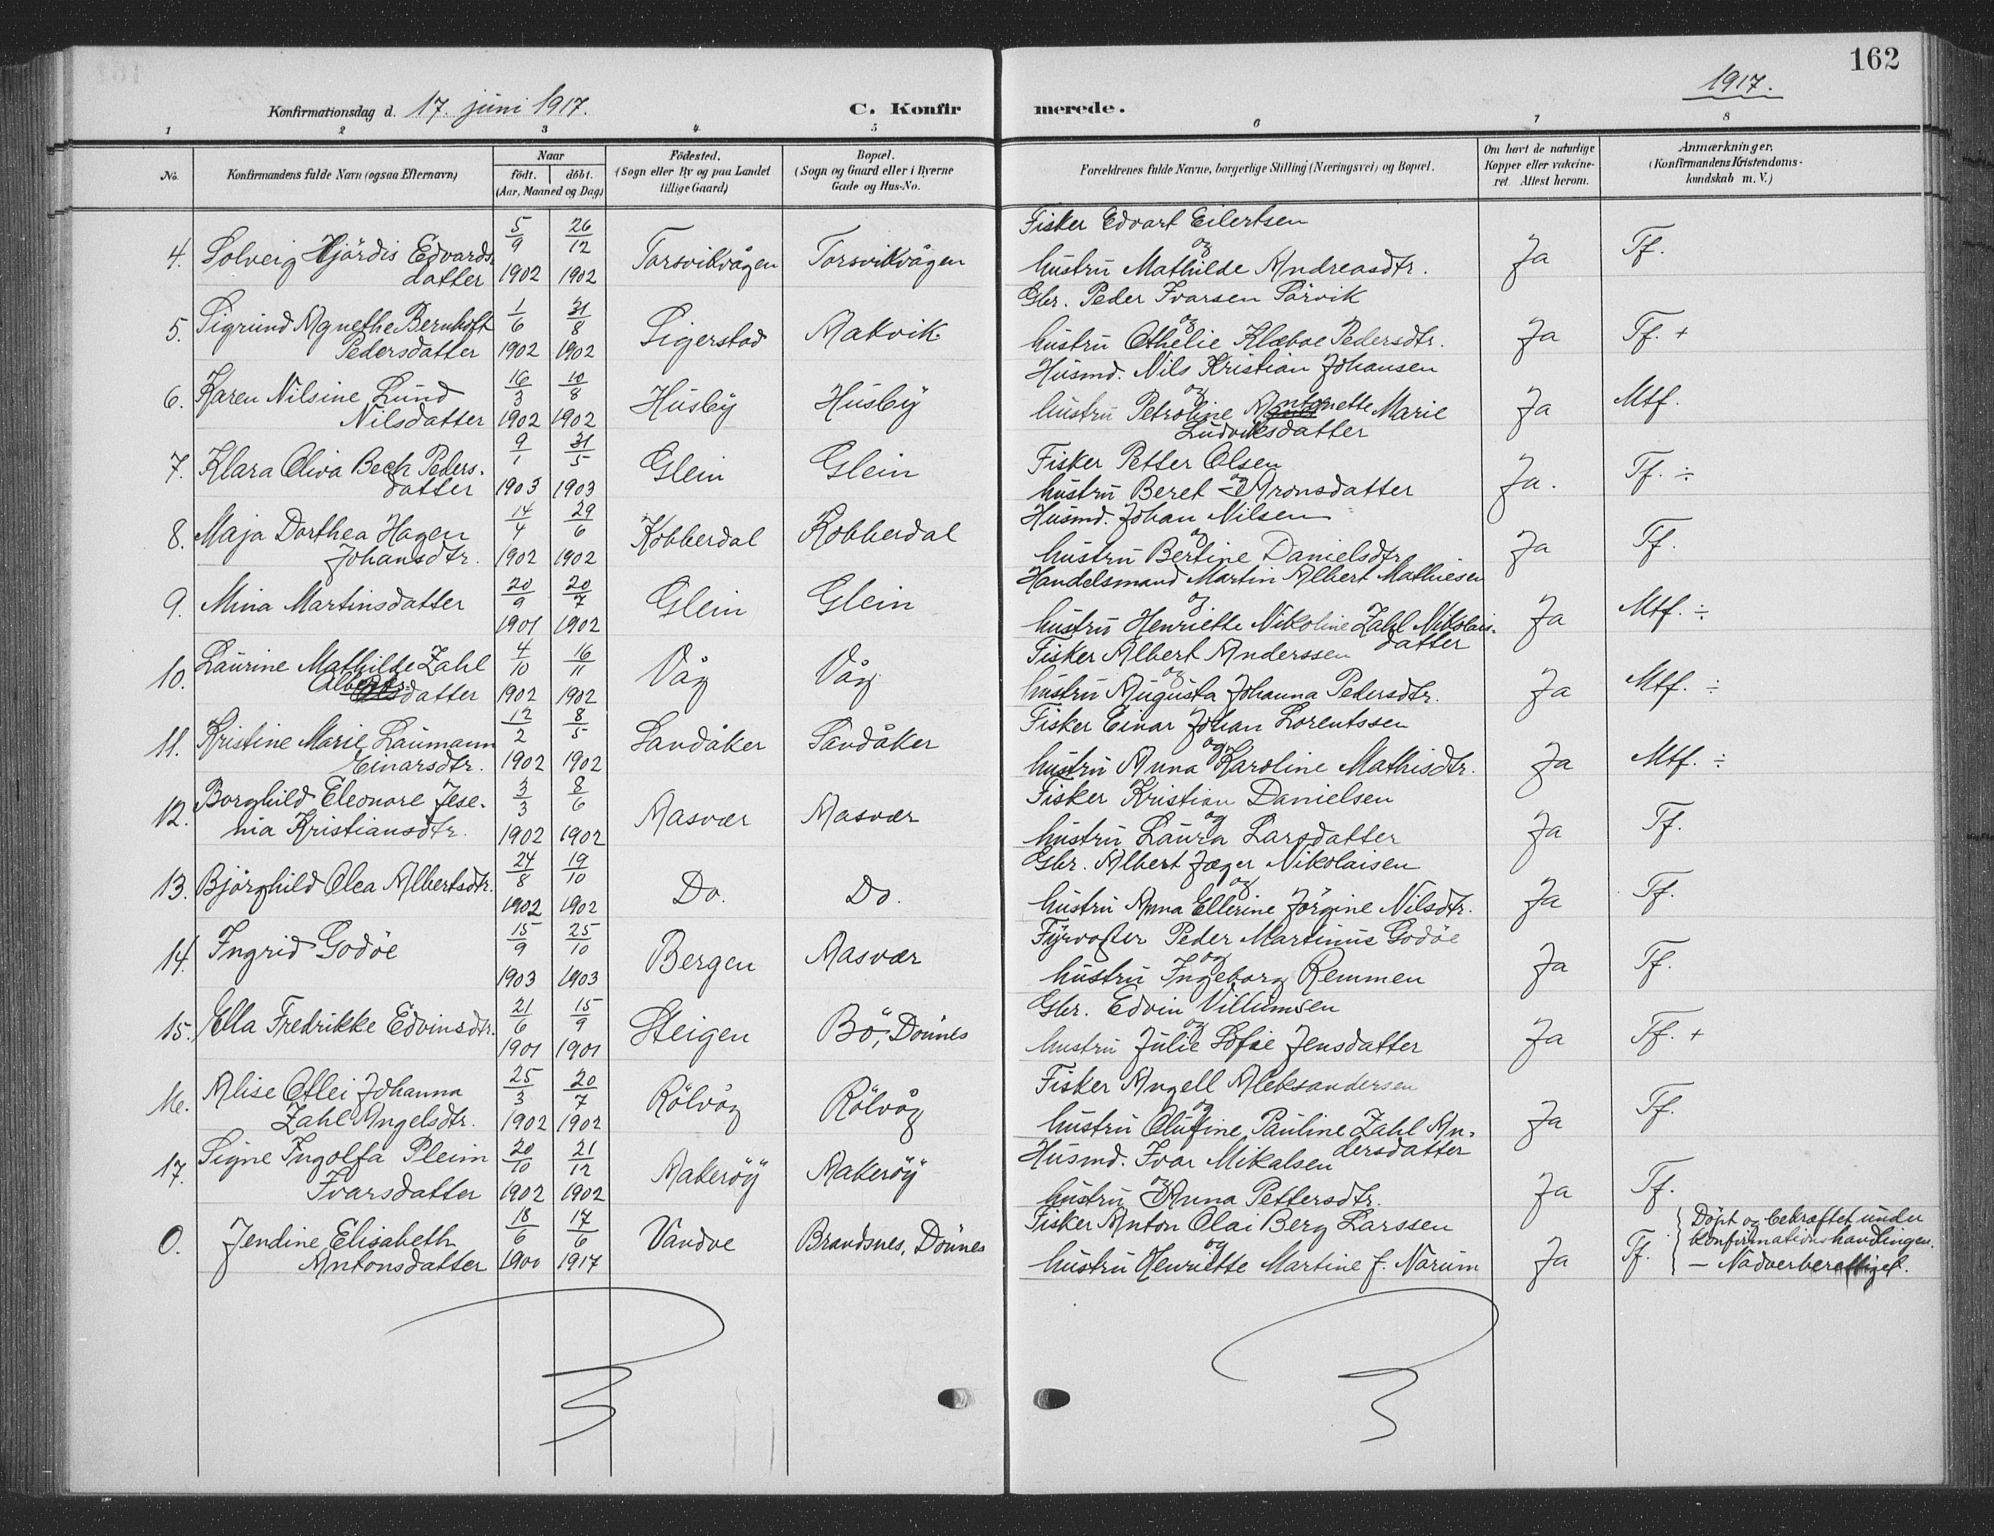 162
1917.
Konfirmationsdag d. 17. juni 1917.
C. Konfirmerede.
1 2 3 4 5 6 7 8
No.
Konfirmandens fulde Navn (ogsaa Efternavn)
Naar
födt. döbt.
(Aar, Maaned og Dag)
Födested.
(Sogn eller By og paa Landet
tillige Gaard)
Bopæl.
(Sogn og Gaard eller i Byerne
Gade og Hus-No.
Forældrenes fulde Navne, borgerlige Stilling (Næringsvei) og Bopæl.
Om havt de naturlige
Kopper eller vakcine-
ret. Attest herom.
Anmærkninger.
(Konfirmandens Kristendoms-
kundskab m. V.)
4. Solveig Hjördis Edvards- 5/9 26/12 Torsvikvågen Torsvikvågen Fisker Edvart Eilertsen og Ja Tf.
datter 1902 1902 hustru Mathilde Andreasdtr.
5. Sigrund Agnethe Bernhoft 1/6 31/8 Sigerstad Makvik Gbr. Peder Ivarsen Parvik og Ja Tf. +
Pedersdatter 1902 1902 hustru Othelie Klæboe Pedersdtr.
6. Karen Nilsine Lund 16/3 10/8 Husby Husby Husmd. Nils Kristian Johansen og Ja Mtf.
Nilsdatter 1902 1902 hustru Petroline Antonette Marie
Ludviksdatter
7. Klara Oliva Bech Peders- 9/1 31/5 Glein Glein Fisker Petter Olsen og Ja. Tf. ÷
datter 1903 1903 hustru Beret Aronsdatter
8. Maja Dorthea Hagen 14/4 29/6 Kobberdal Kobberdal Husmd. Johan Nilsen og Ja Tf.
Johansdtr. 1902 1902 hustru Bertine Danielsdtr.
9. Mina Martinsdatter 20/9 20/7 Glein Glein Handelsmand Martin Albert Mathiesen og Ja Mtf. ÷
1901 1902 hustru Henriette Nikoline Zahl Nikolais-
datter
10. Laurine Mathilde Zahl 4/10 16/11 Våg Våg Fisker Albert Anderssen og Ja Mtf. ÷
Albertsdatter 1902 1902 hustru Augusta Johanna Pedersdtr.
11. Kristine Marie Laumann 12/2 8/5 Sandåker Sandåker Fisker Einar Johan Lorentssen og Ja Mtf. ÷
Einarsdtr. 1902 1902 hustru Anna Karoline Mathisdtr.
12. Borghild Eleonore Jese- 3/3 8/6 Aasvær Aasvær Fisker Kristian Danielsen og Ja Tf.
nia Kristiansdtr. 1902 1902 hustru Laura Larsdatter
13. Bjørghild Olea Albertsdtr. 24/8 19/10 Do. Do. Gbr. Albert Jæger Nikolaisen og Ja Tf.
1902 1902 hustru Anna Ellerine Jörgine Nilsdtr.
14. Ingrid Godöe 15/9 25/10 Bergen Aasvær Fyrvogter Peder Martinus Godöe og Ja Tf.
1903 1903 hustru Ingeborg Remmen
15. Ella Fredrikke Edvinsdtr. 21/6 15/9 Steigen Bö, Dönnes Gbr. Edvin Villumsen og Ja Tf. +
1901 1901 hustru Julie Sofie Jensdatter
16. Alise Otlei Johanna 25/3 20/7 Rölvåg Rölvåg Fisker Angell Aleksandersen og Ja Tf.
Zahl Angelsdtr. 1902 1902 hustru Olufine Pauline Zahl An-
dersdatter
17. Signe Ingolfa Pleim 20/10 21/12 Aakeröy Aakeröy Husmd. Ivar Mikalsen og Ja Tf.
Ivarsdatter 1902 1902 hustru Anna Pettersdtr.
O. Jendine Elisabeth 18/6 17/6 Vandve Brandsnes, Dönnes Fisker Anton Olai Berg Larssen og Ja Tf. Döpt og bekræftet under
Antonsdatter 1900 1917 hustru Henriette Martine f. Norum konfirmationshandlingen.
– Nadverberettiget.